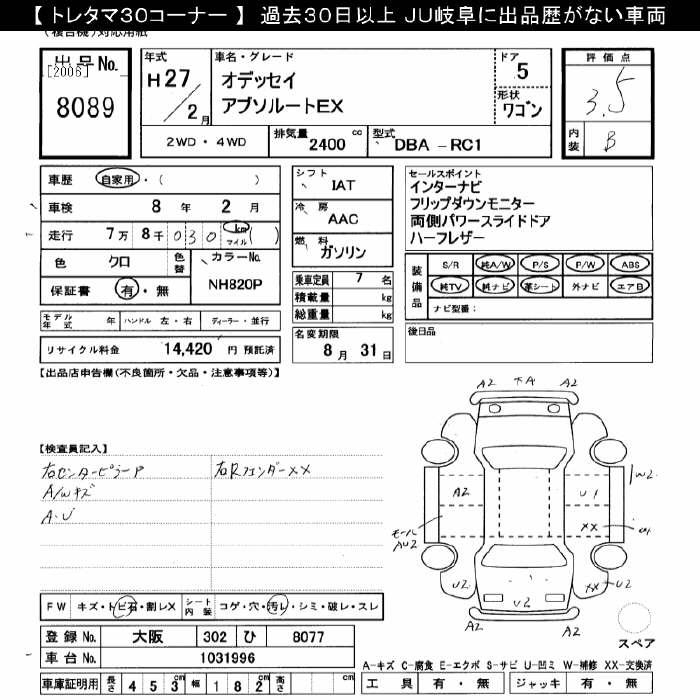 【 トレタマ30コーナー 】 過去30日以上 JU岐阜に出品歴がない車両
(複合機)対応用紙
出品No.
[2006]
8089
年式
H27
2月
車名・グレード
オデッセイ
アブソルートEX
ドア
5
形状
ワゴン
2WD・4WD
排気量
2400 cc
型式
DBA -RC1
評価点
3.5
内装
B
車歴 自家用・( )
車検 8 年 2 月
走行 7万 8千 030 km マイル ( )
色 クロ 色替
カラーNo.
NH820P
保証書 有・無
モデル年式 年 ハンドル 左・右 ディーラー・並行
リサイクル料金 14,420 円 預託済
シフト
IAT
冷房
AAC
燃料
ガソリン
乗車定員 7 名
積載量 kg
総重量 kg
名変期限
8月 31日
セールスポイント
インターナビ
フリップダウンモニター
両側パワースライドドア
ハーフレザー
装備品
S/R 純A/W P/S P/W ABS
純TV 純ナビ 革シート 外ナビ エアB
ナビ型番:
後日品
【出品店申告欄(不良箇所・欠品・注意事項等)】
【検査員記入】
右センターピラーP
右Rフェンダーxx
A/Wキズ
A・U
A2 下A A2
A2
U1
W2
モール
AU2
XX
U2
U2
XX U2
A2 A2
スペア
FW キズ・トビ石・割レX
シート内装 コゲ・穴・汚レ・シミ・破レ・スレ
登録No. 大阪 302 ひ 8077
車台No. 1031996
車庫証明用 長さ 453 cm 幅 182 cm 高さ cm
A-キズ C-腐食 E-エクボ S-サビ U-凹ミ W-補修 XX-交換済
工具 有・無 ジャッキ 有・無